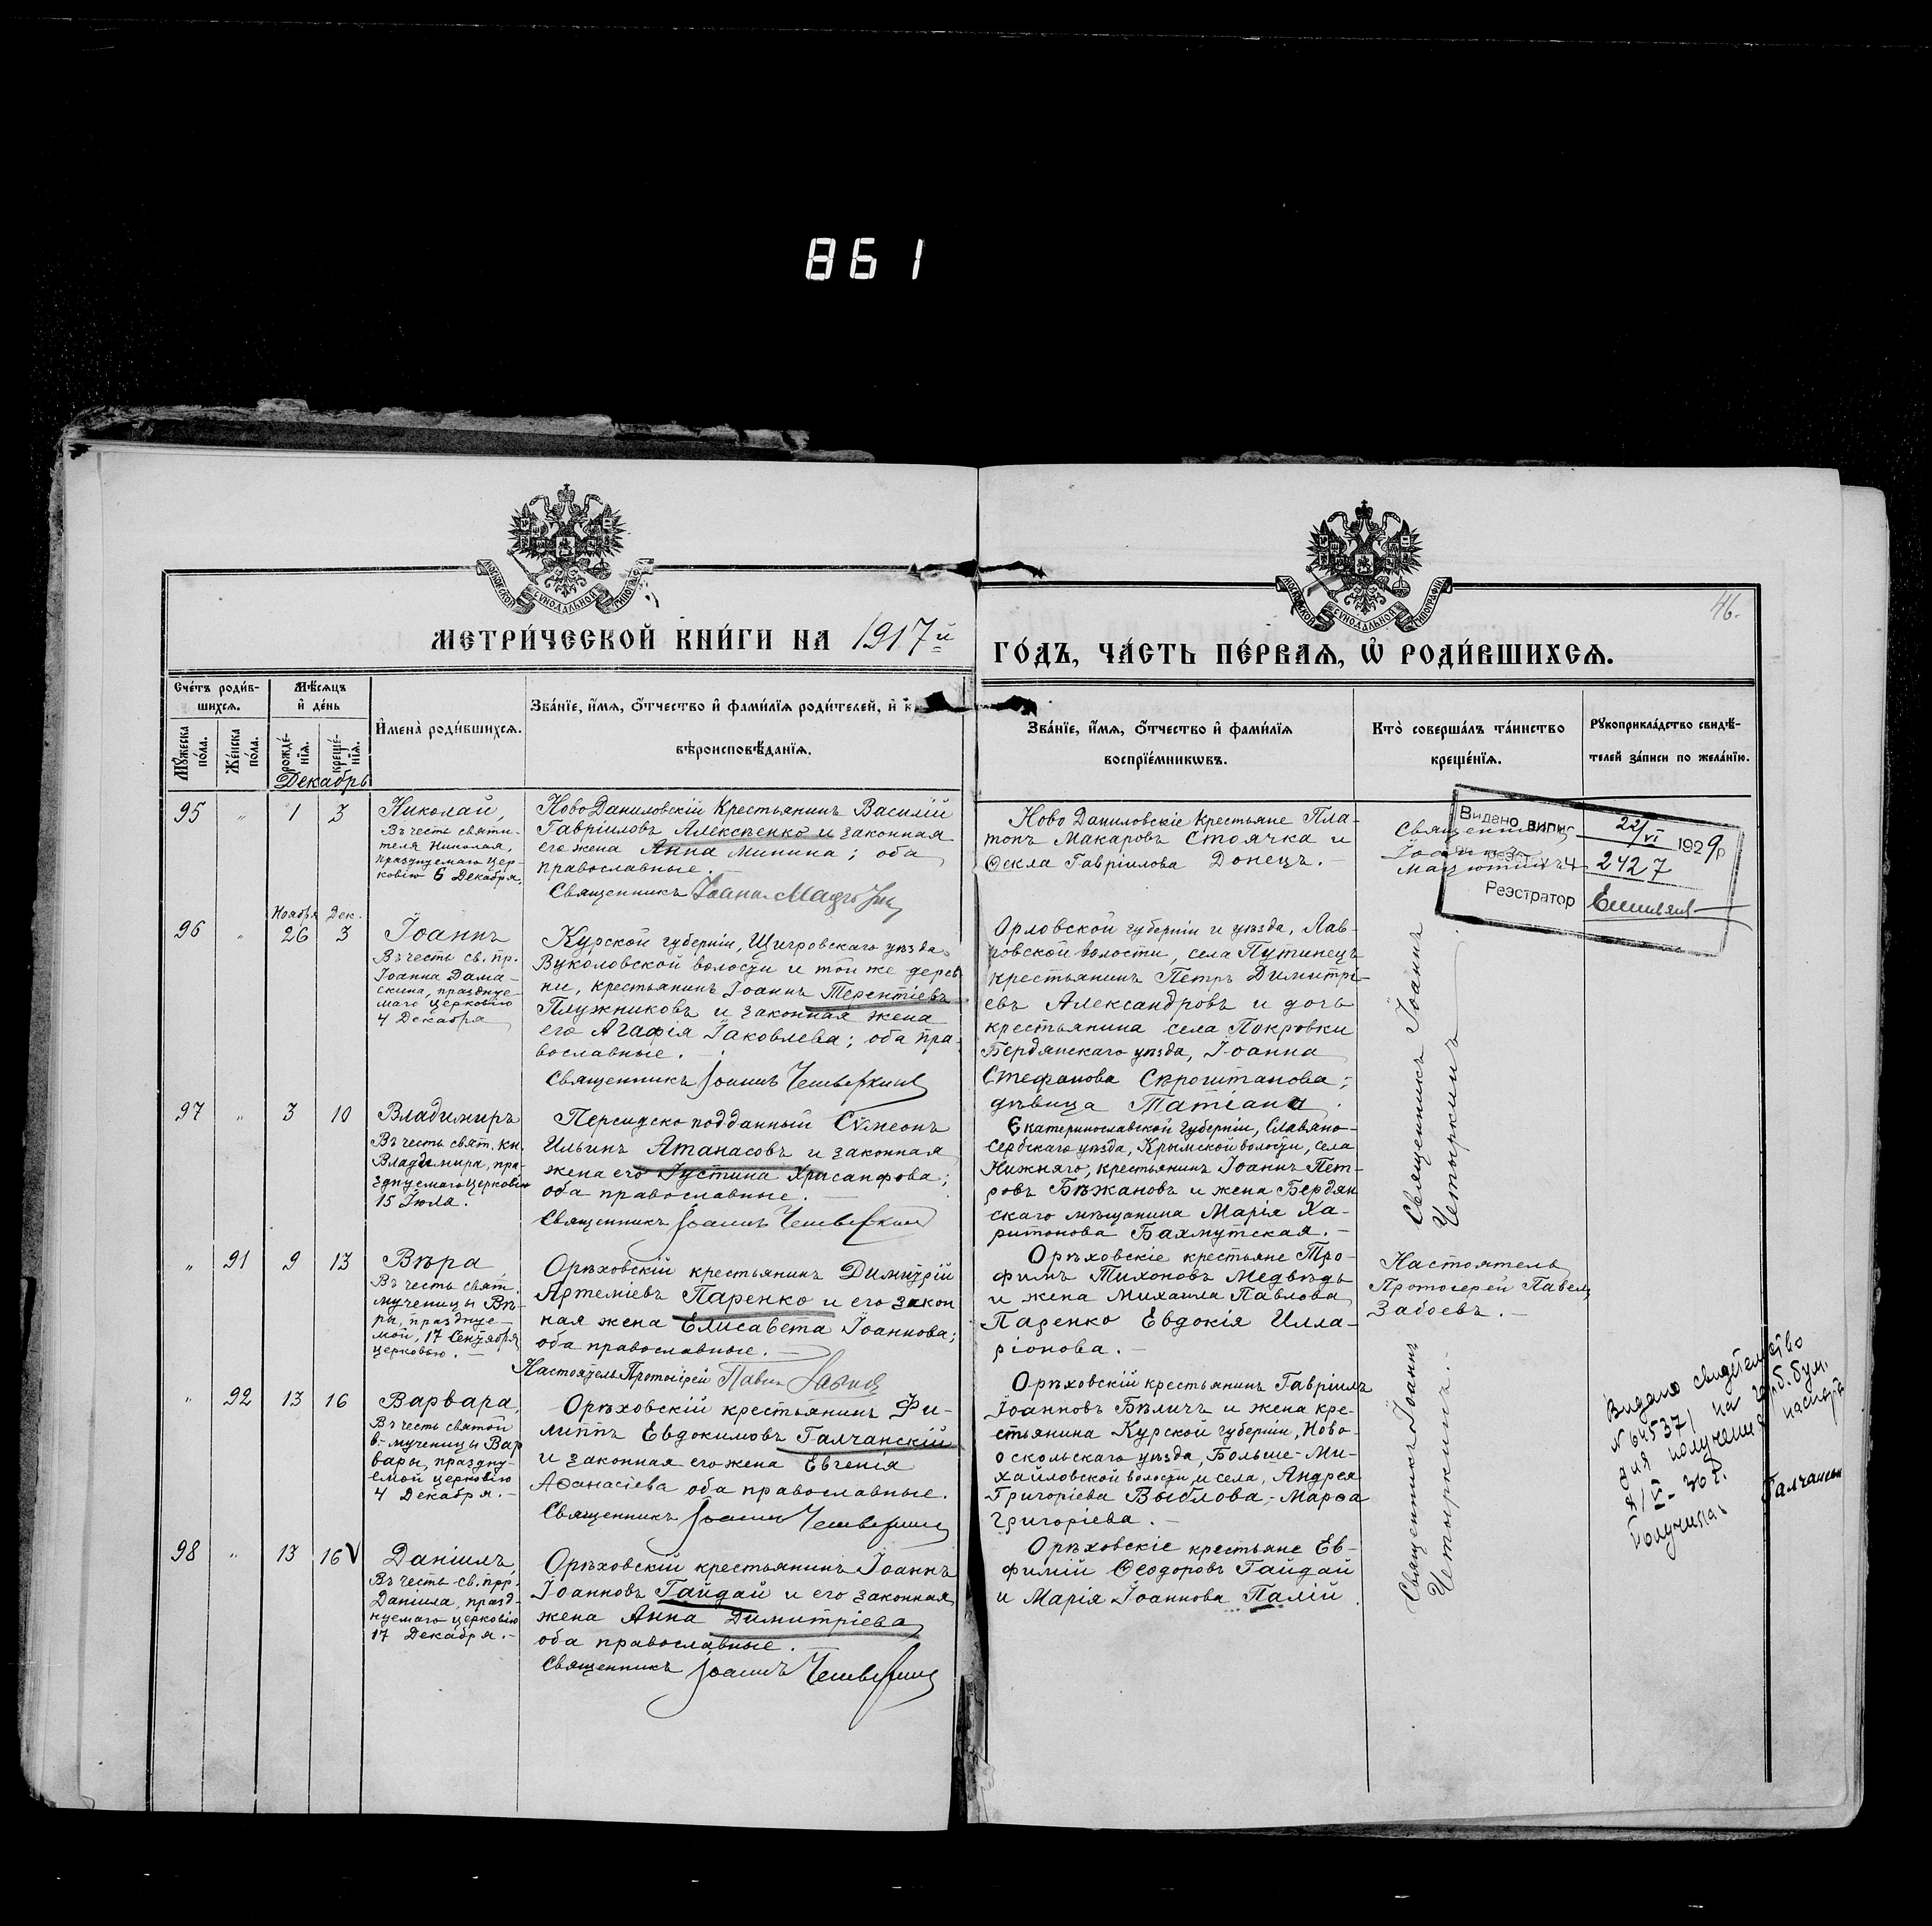 861
46.
МЕТРИ́ЧЕСКОЙ КНИ́ГИ НА 1917й
ГО́ДЪ, ЧА́СТЬ ПЕ́РВАѦ, Ѡ҆ РОДИ́ВШИХСѦ.
Сче́тъ роди́в-
шихсѧ.
Мꙋ́жеска по́ла.
Же́нска по́ла.
Мѣ́сѧцъ
и҆ де́нь
рожде́-
нїѧ.
креще́-
нїѧ.
И҆мена̀ роди́вшихсѧ.
Зва́нїе, и҆́мѧ, ѻ҆́тчество и҆ фами́лїѧ роди́телей, и҆
вѣроисповѣ́данїѧ.
Зва́нїе, и҆́мѧ, ѻ҆́тчество и҆ фами́лїѧ
воспрїе́мникѡвъ.
Кто̀ соверша́лъ та́инство
креще́нїѧ.
Рꙋкоприкла́дство свидѣ́-
телей за́писи по жела́нїю.
Декабрь
95 " 1 3
Николай,
Въ честь святи-
теля Николая,
празднуемаго цер-
ковію 6 Декабря.
Ново Даниловскій Крестьянинъ Василій
Гавріиловъ Алексѣенко и законная
его жена Анна Минина; оба
православные.
Священникъ Іоаннъ
Ново Даниловскіе Крестьяне Пла-
тонъ Макаровъ Стоячка и
Ѳекла Гавріилова Донецъ.
Священникъ
Іоаннъ
Видано випис
22/VI 1929р
2427
Реэстратор
Ноября Дек.
96 " 26 3
Іоаннъ
Въ честь св. пр.
Іоанна Дама-
скина, праздуе-
маго церковію
4 Декабря
Курской губерніи, Щигровскаго уѣзда
Вуколовской волости и той же дерев-
ни, крестьянинъ Іоаннъ Терентіевъ
Плужниковъ и законная жена
его Агафія Іаковлева; оба пра-
вославные.
Священникъ Іоаннъ Четыркинъ
Орловской губерніи и уѣзда, Лав-
ровской волости, села Путинецъ
крестьянинъ Петръ Димитрі-
евъ Александровъ и дочь
крестьянина села Покровки
Бердянскаго уѣзда, Іоанна
Стефанова Скроштанова;
дѣвица Татіана.
Священникъ Іоаннъ
Четыркинъ
97 " 3 10
Владимиръ
Въ честь свят. кн.
Владимира, пра-
зднуемаго церковію
15 Іюля.
Персидско подданный Сѵмеонъ
Ильинъ Атанасовъ и законная
жена его Іустина Хрисанфова;
оба православные.
Священникъ Іоаннъ Четыркинъ
Екатеринославской губерніи, Славяно-
сербскаго уѣзда, Крымской волости, села
Нижняго, крестьянинъ Іоаннъ Пет-
ровъ Бѣжановъ и жена Бердян
скаго мѣщанина Марія Ха-
ритонова Бахмутская.
" 91 9 13
Вѣра
Въ честь свят.
мученицы Вѣ-
ры, праздуе-
мой, 17 Сентября
церковью.
Орѣховскій крестьянинъ Димитрій
Артеміевъ Паренко и его закон
ная жена Елисавета Іоаннова;
оба православные.
Настоятель Протоіерей Павелъ
Орѣховскіе крестьяне Тро-
фимъ Тихоновъ Медвѣдь
и жена Михаила Павлова
Паренко Евдокія Илла-
ріонова.
Настоятель
Протоіерей Павелъ
Забоевъ.
" 92 13 16
Варвара,
Въ честь святой
в-мученицы Вар
вары, праздну-
емой церковію
4 Декабря.
Орѣховскій крестьянинъ Фи-
липпъ Евдокимовъ Галчанскій
и законная его жена Евгенія
Аѳанасіева оба православные.
Священникъ Іоаннъ Четыркинъ
Орѣховскій крестьянинъ Гавріилъ
Іоанновъ Бѣличъ и жена кре-
стьянина Курской губерніи, Ново-
оскольскаго уѣзда, Больше-Ми-
хайловской волости и села, Андрея
Григоріева Выблова - Марѳа
Григоріева.
Священникъ Іоаннъ
Четыркинъ.
Видано свидетельство
N 64537/ на герб. бум.
для получения паспорта
VI - 36 г.
Получила Галчанск
98 " 13 16 V
Даніилъ
Въ честь св. прр.
Даніила, празд-
нуемаго церковію
17 Декабря.
Орѣховскій крестьянинъ Іоаннъ
Іоанновъ Гайдай и его законная
жена Анна Димитріева
оба православные.
Священникъ Іоаннъ Четыркинъ
Орѣховскіе крестьяне Ев-
фимій Ѳеодоровъ Гайдай
и Марія Іоаннова Палій